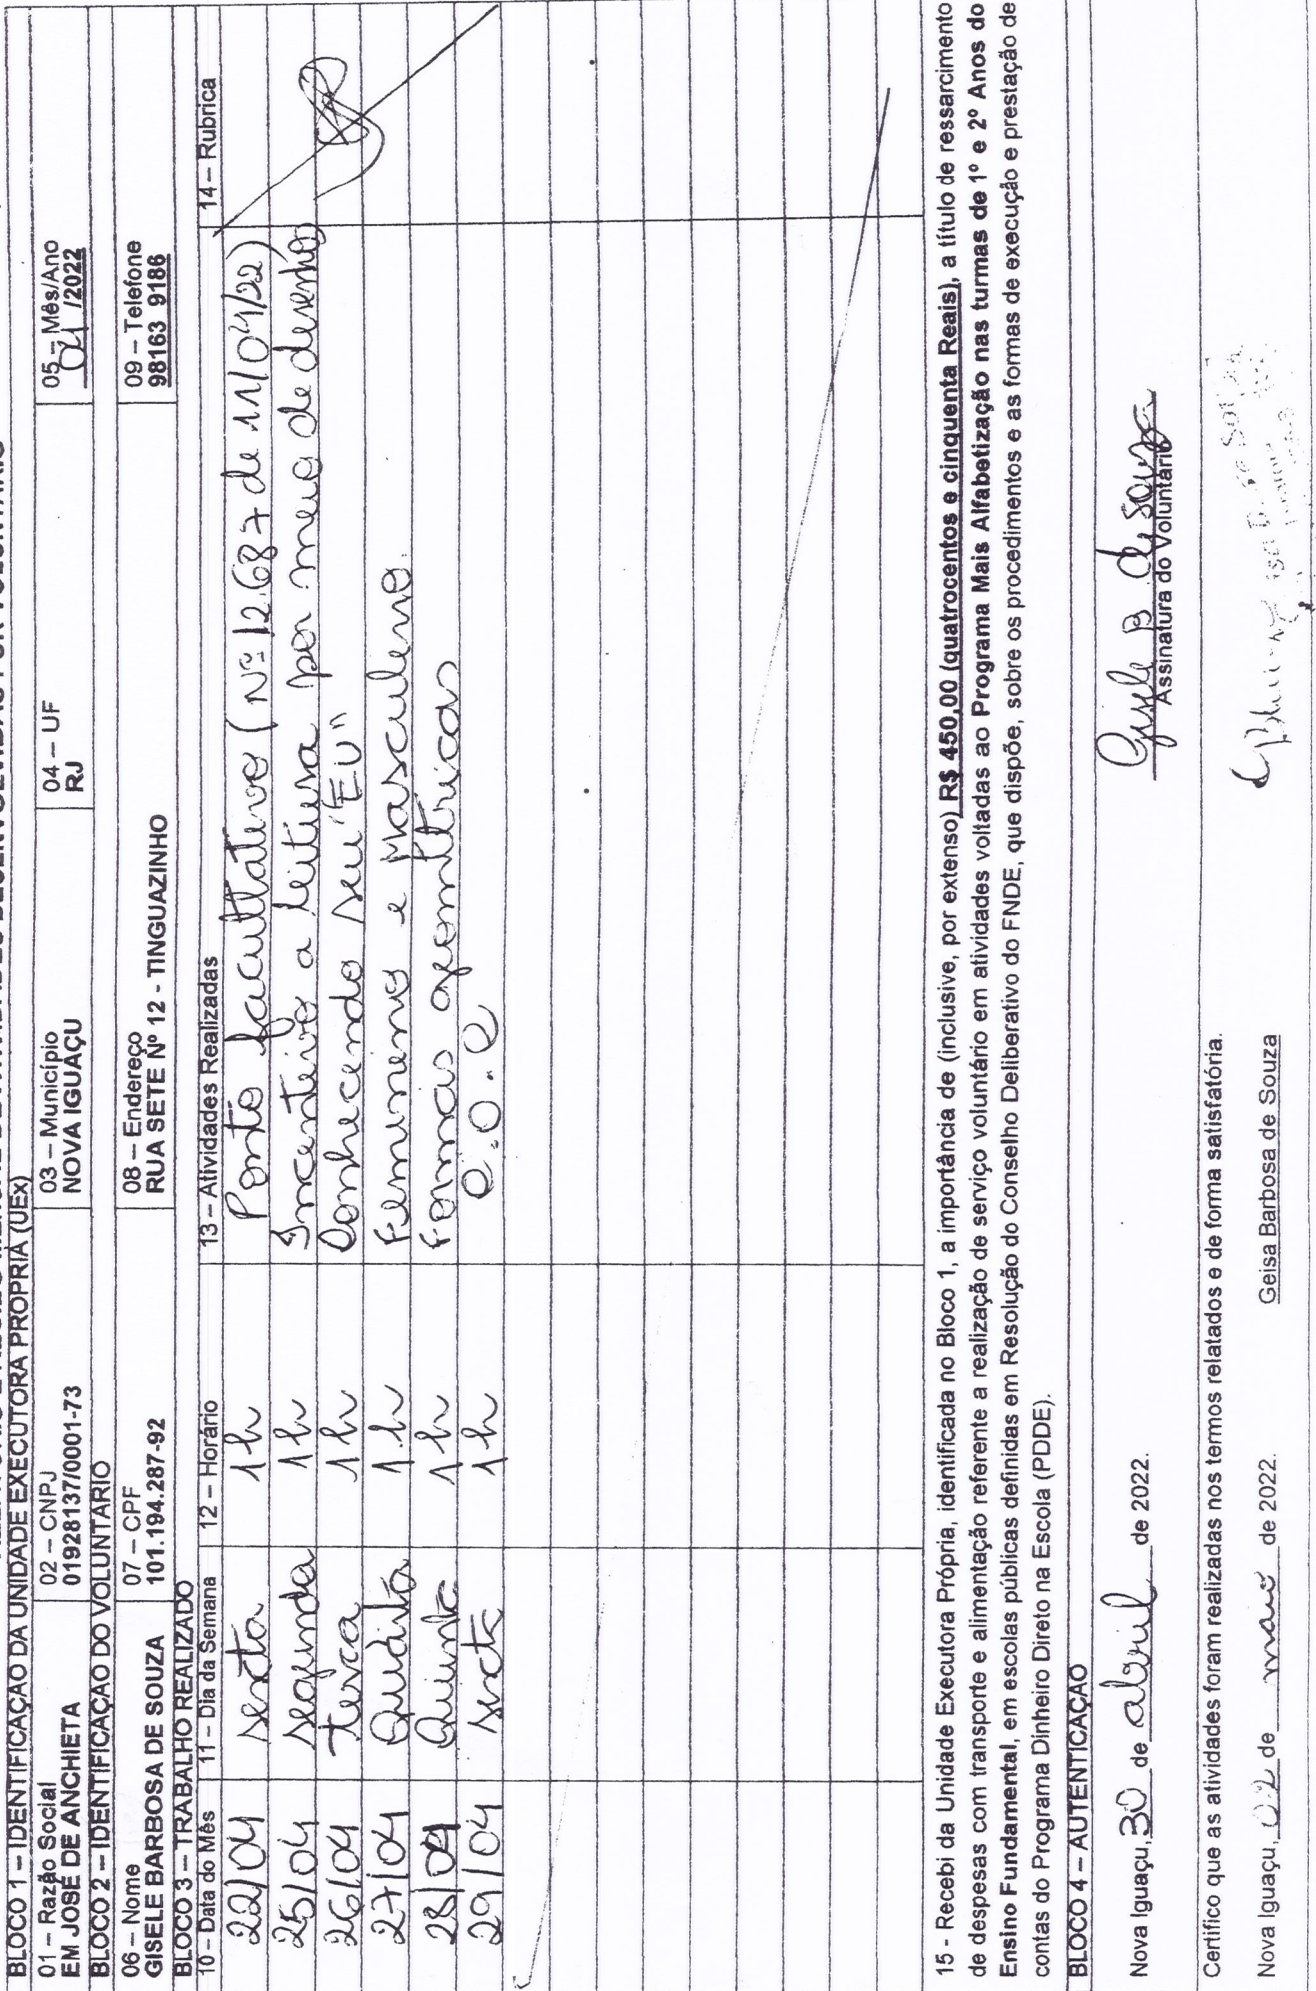 BLOCO 1 – IDENTIFICAÇÃO DA UNIDADE EXECUTORA PRÓPRIA (UEx)
01 – Razão Social
EM JOSÉ DE ANCHIETA
02 – CNPJ
01928137/0001-73
03 – Município
NOVA IGUAÇU
04 – UF
RJ
05 – Mês/Ano
04 /2022
BLOCO 2 – IDENTIFICAÇÃO DO VOLUNTÁRIO
06 – Nome
GISELE BARBOSA DE SOUZA
07 – CPF
101.194.287-92
08 – Endereço
RUA SETE Nº 12 - TINGUAZINHO
09 – Telefone
98163 9186
BLOCO 3 – TRABALHO REALIZADO
10 – Data do Mês 11 – Dia da Semana 12 – Horário 13 – Atividades Realizadas 14 – Rubrica
22/04 sexta 1h Ponto facultativo (Nº 12.687 de 11/04/22)
25/04 segunda 1h Incentivo a leitura por meio de desenho
26/04 terca 1h Conhecendo seu "EU"
27/04 Quarta 1h Feminino e Masculino.
28/04 Quinta 1h Formas geométricas
29/04 sexta 1h C.O.C
15 - Recebi da Unidade Executora Própria, identificada no Bloco 1, a importância de (inclusive, por extenso) R$ 450,00 (quatrocentos e cinquenta Reais), a título de ressarcimento
de despesas com transporte e alimentação referente a realização de serviço voluntário em atividades voltadas ao Programa Mais Alfabetização nas turmas de 1º e 2º Anos do
Ensino Fundamental, em escolas públicas definidas em Resolução do Conselho Deliberativo do FNDE, que dispõe, sobre os procedimentos e as formas de execução e prestação de
contas do Programa Dinheiro Direto na Escola (PDDE).
BLOCO 4 – AUTENTICAÇÃO
Nova Iguaçu, 30 de abril de 2022.
Gisele B de souza
Assinatura do Voluntário
Certifico que as atividades foram realizadas nos termos relatados e de forma satisfatória.
Nova Iguaçu, 02 de maio de 2022.
Geisa Barbosa de Souza